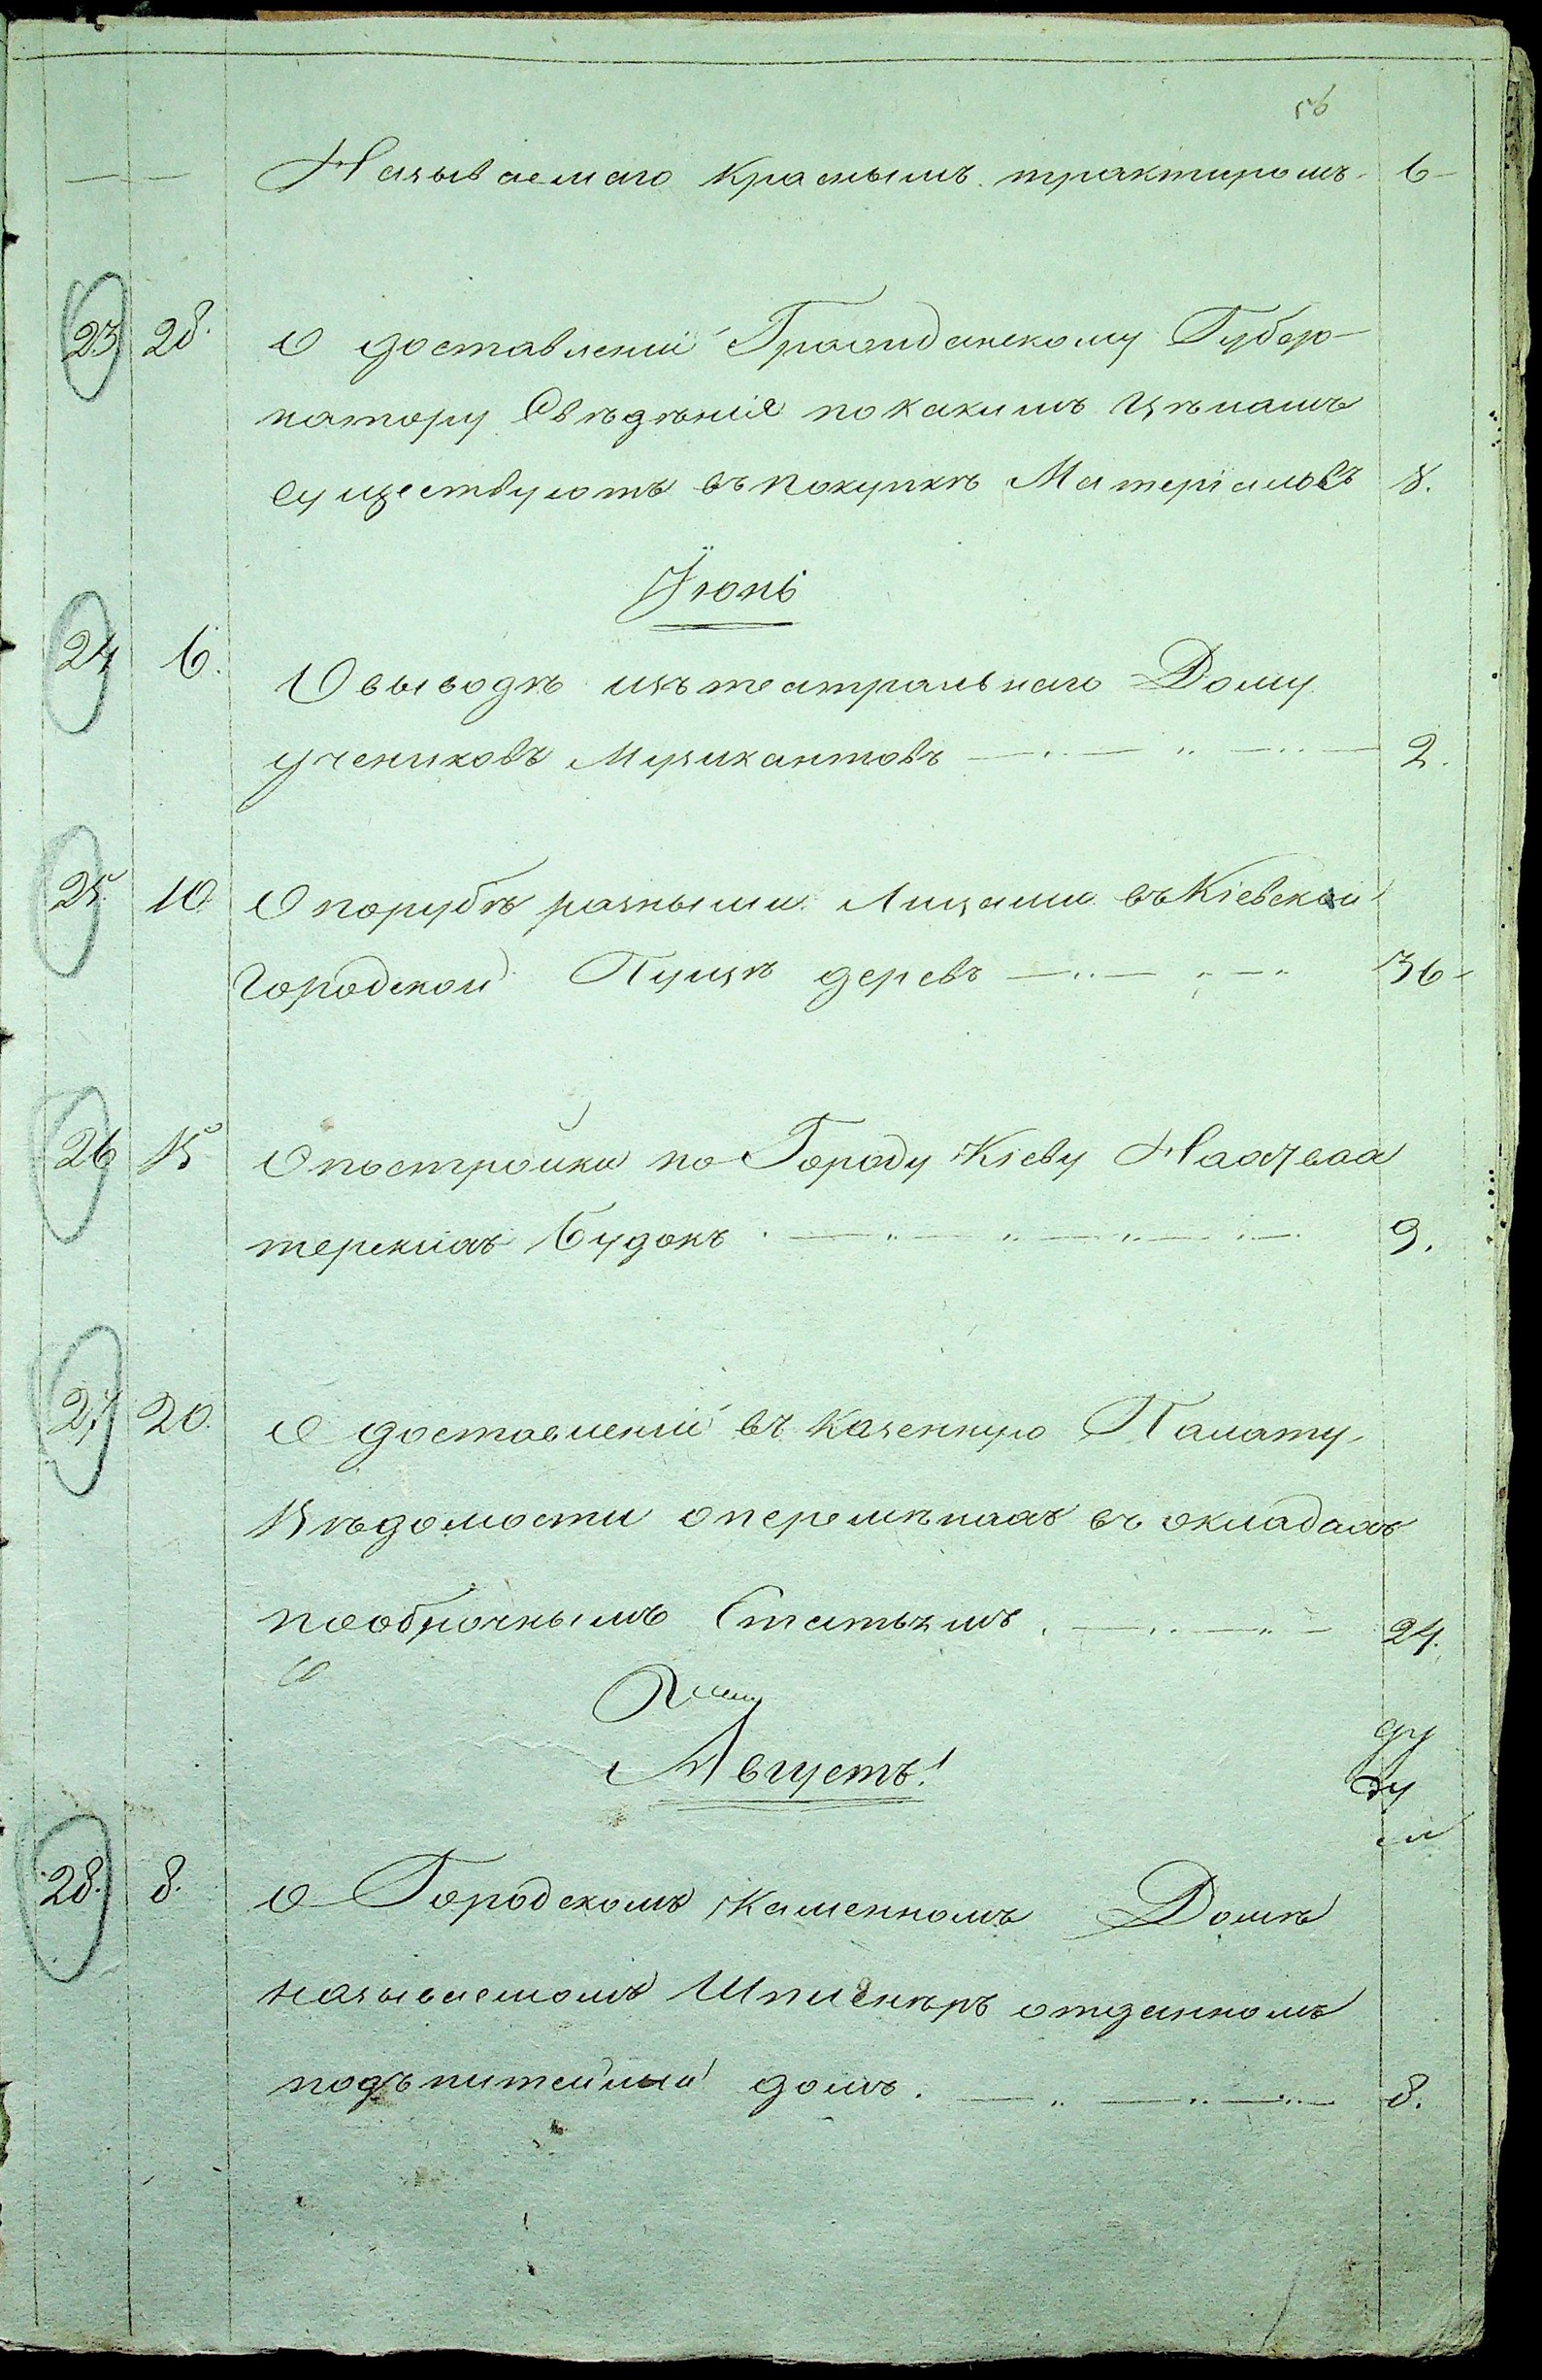 Называемаго Краснымъ трактиромъ. 6
23 28. О доставленіи Гражданскому Губер-
натору Свѣдѣнія по какимъ цѣнамъ
существуютъ въ покупкѣ Матеріаловъ 8.
Іюнь
24 6. О выводѣ изъ театральнаго Дому
учениковъ Музикантовъ 2.
25. 10 О порубѣ разными Лицами въ Кіевской
Городской Пущѣ деревъ 36
26 15 О постройки по Городу Кіеву
терскихъ Будокъ 9.
27 20. О доставленіи въ Казенную Палату
Вѣдомости о перемѣнахъ въ окладахъ
по оброчнымъ Статьямъ 24.
Августъ
ду
ду
28. 8. О Городскомъ Каменномъ Домѣ
называемомъ Шписнѣръ отданномъ
подъ питейный домъ. 8.